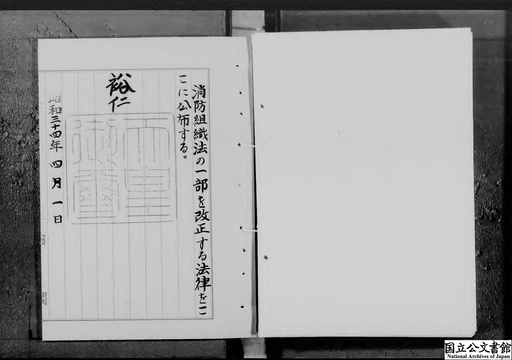 消防組織法の一部を改正する法律をこ
こに公布する。
裕仁
天皇
御璽
昭和三十四年四月一日
国立公文書館
National Archives of Japan